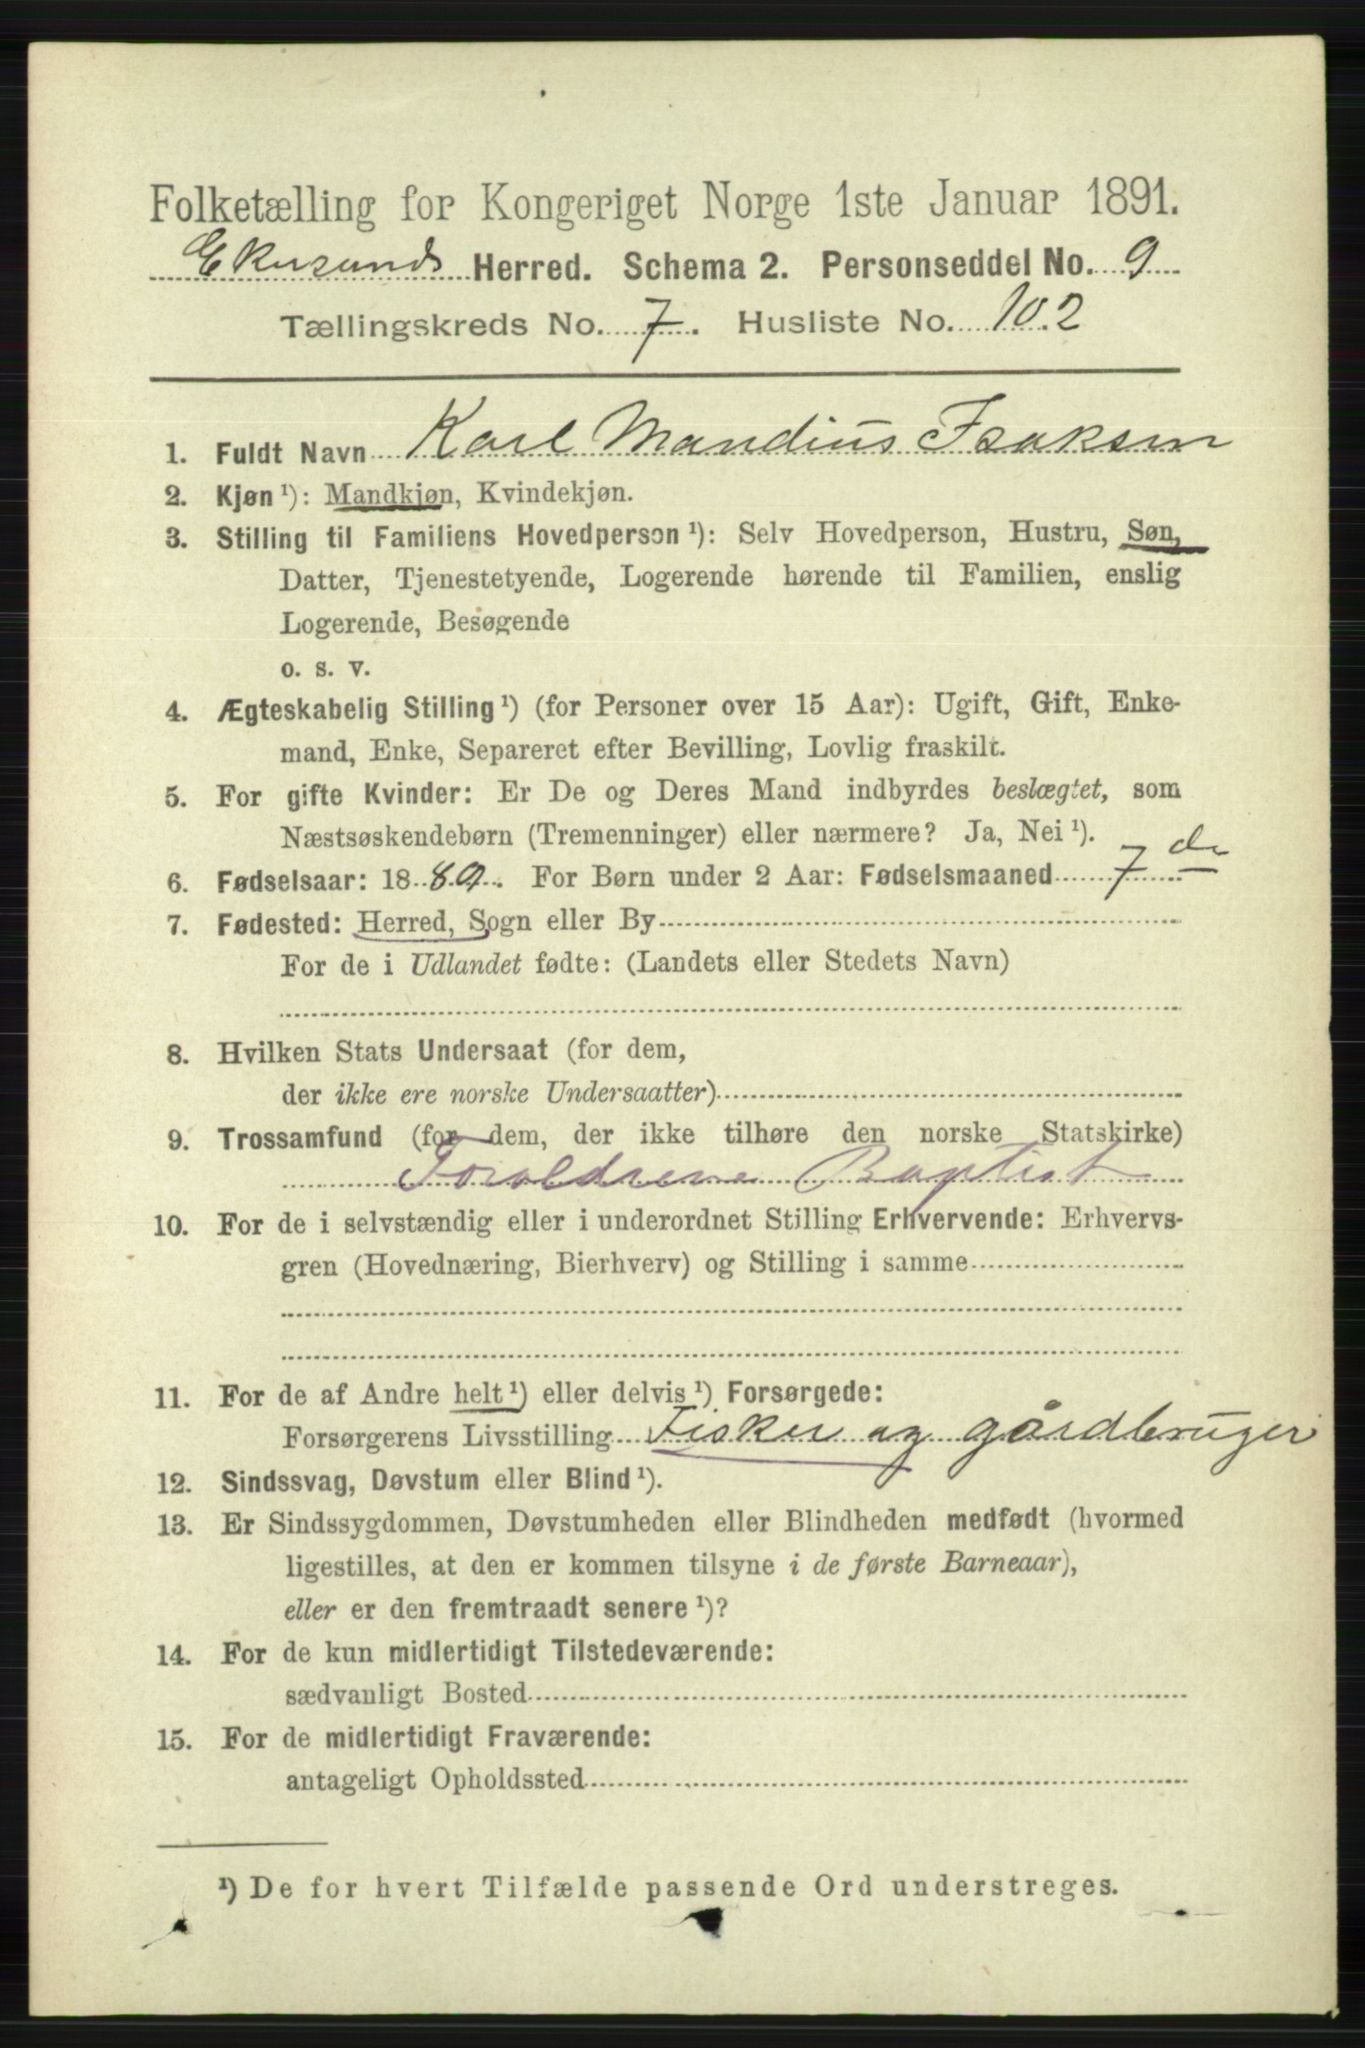 Folketælling for Kongeriget Norge 1ste Januar 1891.
Ekersunds Herred. Schema 2. Personseddel No. 9
Tællingskreds No. 7. Husliste No. 102
1. Fuldt Navn Karl Mandius Isaksen
2. Kjøn ¹): Mandkjøn, Kvindekjøn.
3. Stilling til Familiens Hovedperson ¹): Selv Hovedperson, Hustru, Søn,
Datter, Tjenestetyende, Logerende hørende til Familien, enslig
Logerende, Besøgende
o. s. v.
4. Ægteskabelig Stilling ¹) (for Personer over 15 Aar): Ugift, Gift, Enke-
mand, Enke, Separeret efter Bevilling, Lovlig fraskilt.
5. For gifte Kvinder: Er De og Deres Mand indbyrdes beslægtet, som
Næstsøskendebørn (Tremenninger) eller nærmere? Ja, Nei ¹).
6. Fødselsaar: 1889. For Børn under 2 Aar: Fødselsmaaned 7 de
7. Fødested: Herred, Sogn eller By
For de i Udlandet fødte: (Landets eller Stedets Navn)
8. Hvilken Stats Undersaat (for dem,
der ikke ere norske Undersaatter)
9. Trossamfund (for dem, der ikke tilhøre den norske Statskirke)
Forældrene Baptist
10. For de i selvstændig eller i underordnet Stilling Erhvervende: Erhvervs-
gren (Hovednæring, Bierhverv) og Stilling i samme
11. For de af Andre helt ¹) eller delvis ¹) Forsørgede:
Forsørgerens Livsstilling Fisker og gårdbruger
12. Sindssvag, Døvstum eller Blind ¹).
13. Er Sindssygdommen, Døvstumheden eller Blindheden medfødt (hvormed
ligestilles, at den er kommen tilsyne i de første Barneaar),
eller er den fremtraadt senere ¹)?
14. For de kun midlertidigt Tilstedeværende:
sædvanligt Bosted
15. For de midlertidigt Fraværende:
antageligt Opholdssted
¹) De for hvert Tilfælde passende Ord understreges.